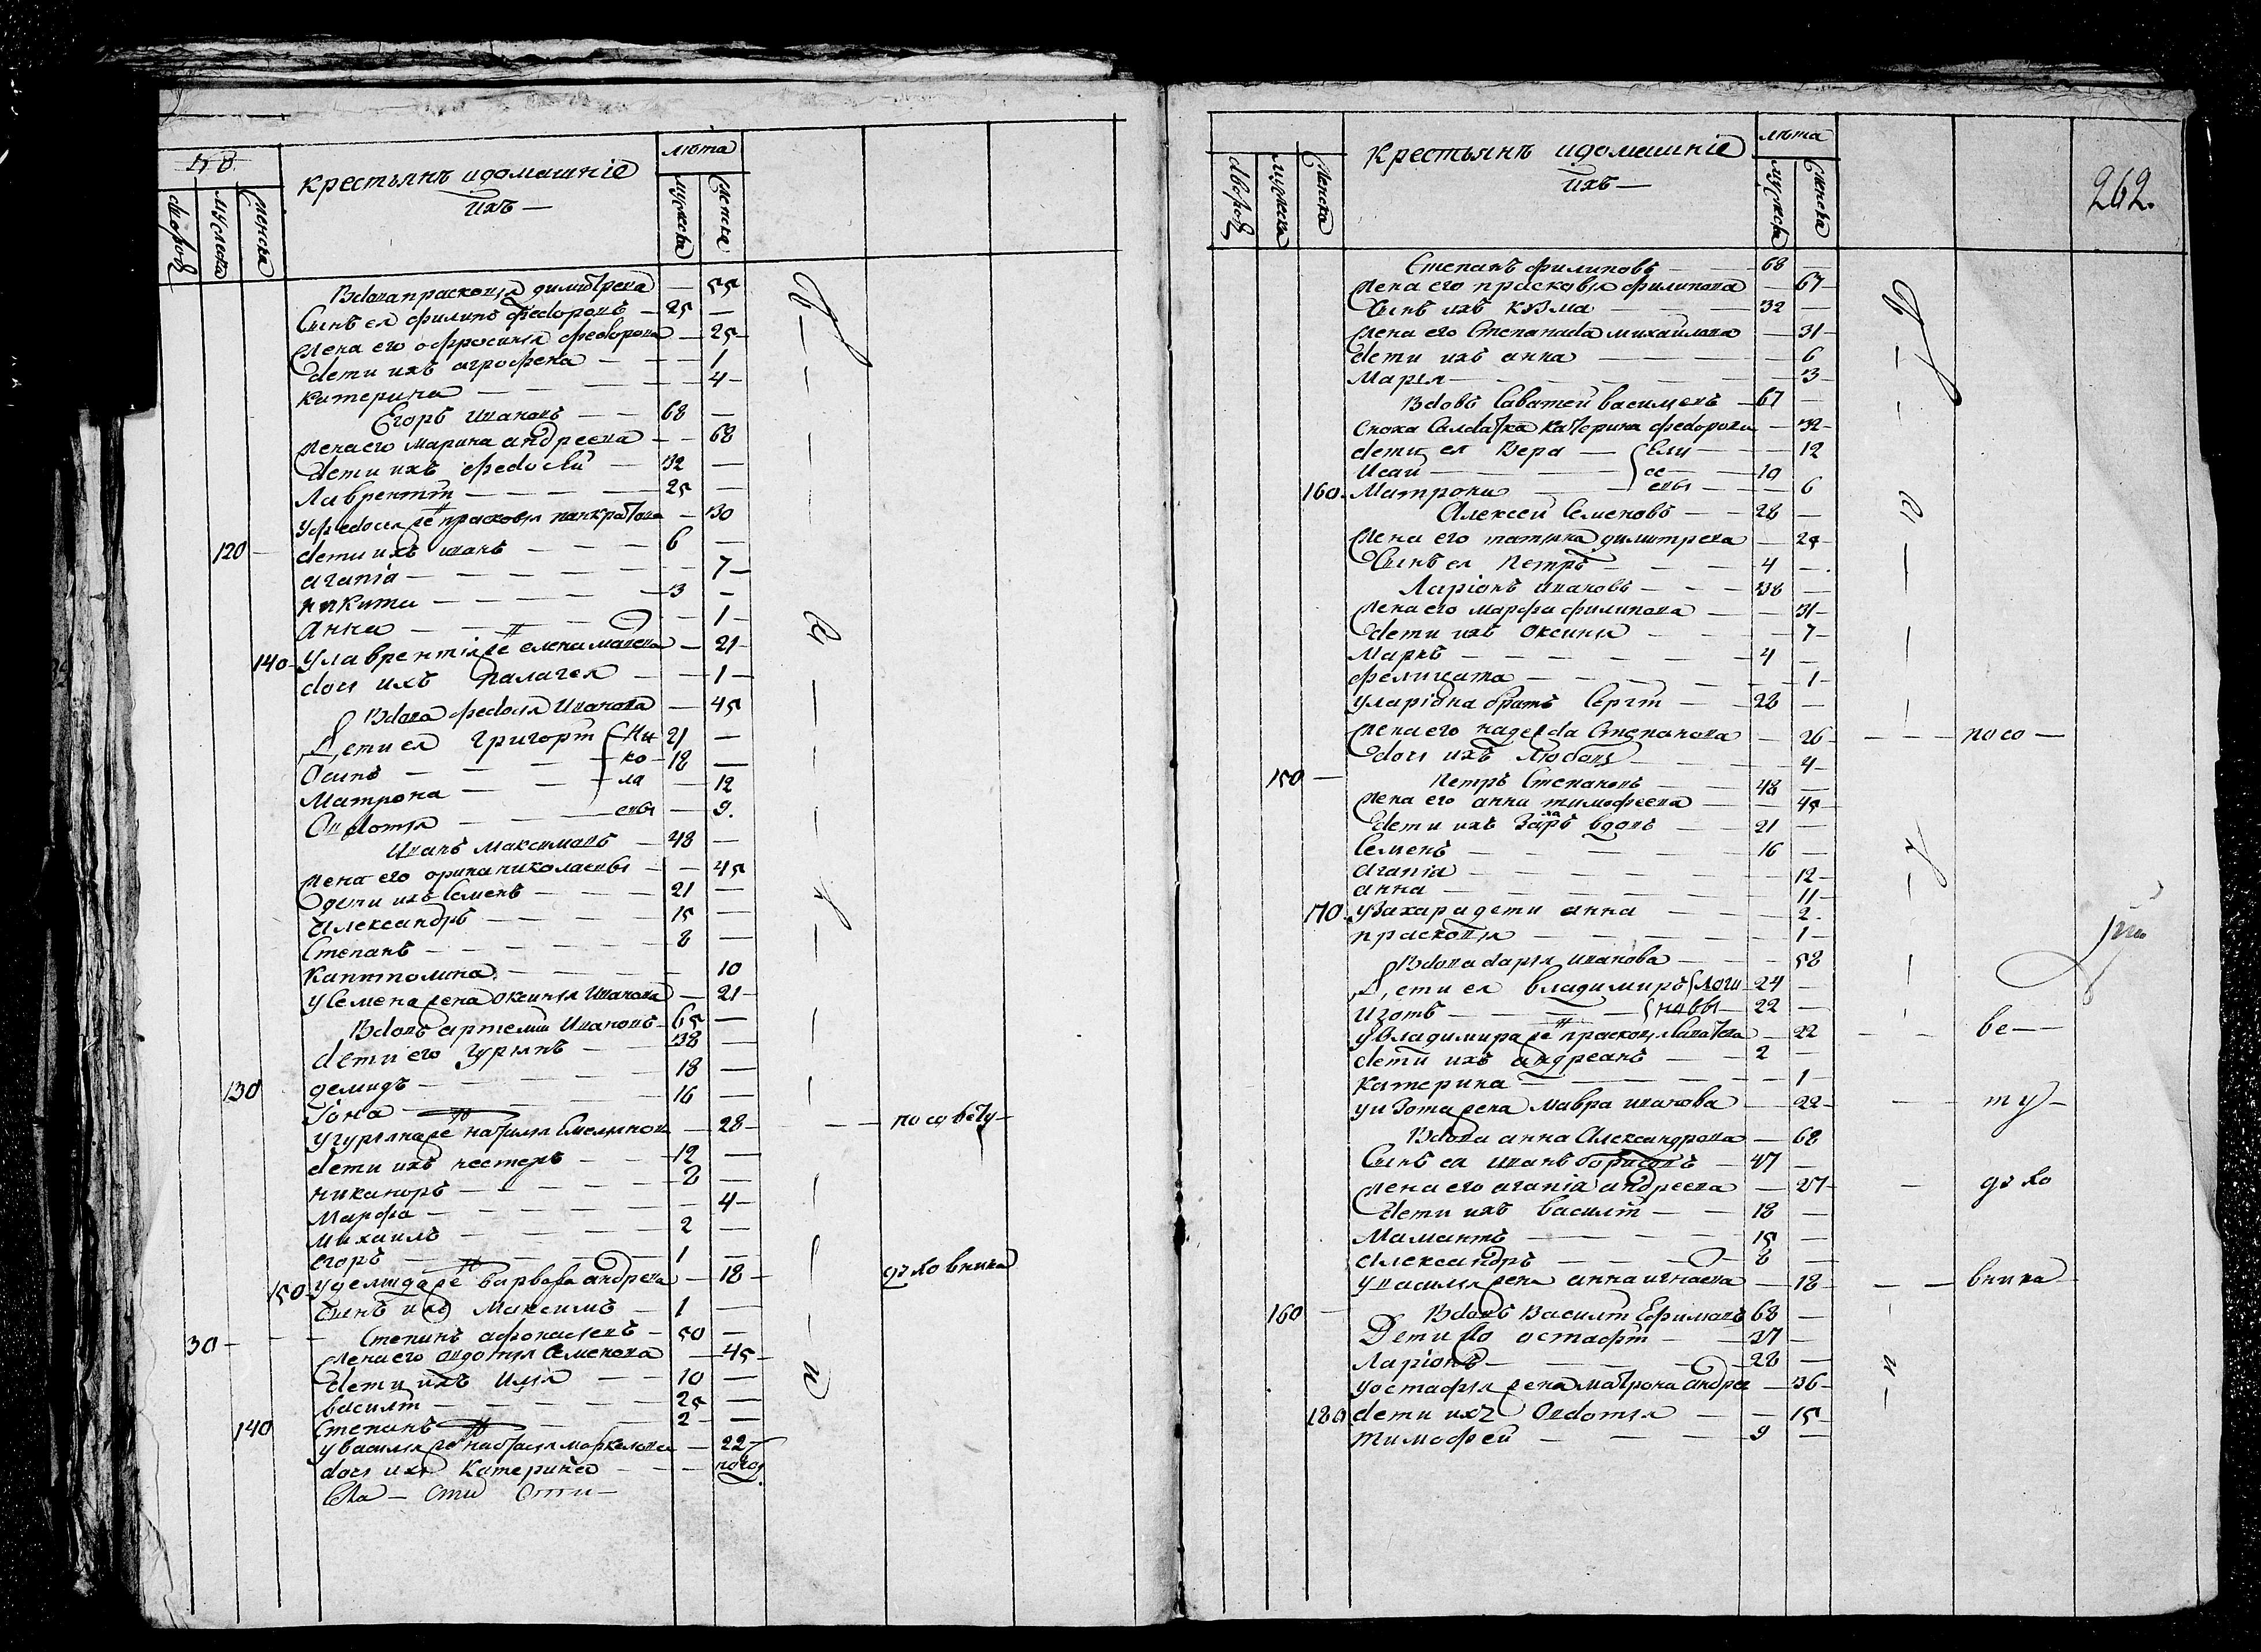 крестьянъ идомашніе
ихъ —
лѣта
дворов
мужеска
женска
мужеска
женска
Вдова прасковія димитрева — 55
Сынъ ея филипъ федоровъ — 25 —
жена его офросинія федорова — 25
дети ихъ агрофена — 1
катерина — 4
Егоръ ивановъ — 68 —
жена его марина андреева — 68
дети ихъ федосѣй — 32 —
Лаврентій — 25 —
у федосія же прасковія панкратова — 30
120 — дети ихъ иванъ — 6 —
агапіа — 7
никита — 3 —
анна — 1
140 — у лаврентія же елена — 21
дочь ихъ палагея — 1
Вдова федосія Иванова — 45
Дети ея григорій Ни 21 —
Осипъ — ко — 18 —
Матрона — ла — 12
Овдотія — евы — 9.
Иванъ максимовъ — 48 —
жена его орина николаевы — 45
дети ихъ Семенъ — 21 —
Александръ — 15 —
Степанъ — 8 —
Капитолина — 10
у Семена жена оксинія Иванова — 21
Вдовъ артемій Ивановъ — 65 —
дети его гурьянъ — 38 —
130 демидъ — 18 —
Іона — 16 —
у гурьяна же наталія Емельянов — 28 — по совѣту
дети ихъ нестеръ — 12 —
никаноръ — 8 —
Марфа — 4
михаилъ — 2 —
егоръ — 1 —
150 у демида же варвара андрева — 18 — духовника
Сынъ ихъ Максимъ — 1 —
30 — Степанъ афонасіевъ — 50 —
жена его овдотія Семенова — 45
дети ихъ Илія — 10 —
василій — 25 —
140 Степанъ — 2 —
у василія же настасія маркелова — 22
дочь ихъ Катерина — полгод.
крестьянъ идомашніе
ихъ —
лѣта
262.
дворов
мужеска
женска
мужеска
женска
Степанъ филиповъ — 68 —
жена его прасковія филипова — 67
Сынъ ихъ кузма — 32 —
жена его Степанида михаилова — 31
дети ихъ анна — 6
Марія — 3
Вдовъ Саватей василіевъ — 67 —
сноха Салдатка катерина федорова — 32
дети ея Вера — Ели — 12
Исай — се — 10
160. Матрона — евы — 6
Алексей Семеновъ — 28 —
жена его татіяна димитрева — 25
Сынъ ея Петръ — 4 —
Ларіонъ ивановъ — 38 —
жена его марфа филипова — 31
дети ихъ оксинія — 7
Маркъ — 4 —
фелицата — 1
у ларіона братъ Сергій — 28 —
жена его надежда Степанова — 26 — по со —
дочь ихъ Любовь — 4
150 — Петръ Степановъ — 48 —
жена его анна тимофеева — 45
дети ихъ Захаръ вдовъ — 21 —
Семенъ — 16 —
агапіа — 12
анна — 11
170. у Захара дети анна — 2.
прасковія — 1
Вдова дарія иванова — 58
Дети ея владимиръ Логи 24 —
Изотъ — новы — 22 —
у владимира же прасков. Саватева — 22 — ве —
дети ихъ андреанъ — 2 —
катерина — 1
у изота жена мавра иванова — 22 — ту
Вдова анна Александрова — 68
Сынъ еа иванъ борисовъ — 47 —
жена его агапіа андреева — 37 — духо
дети ихъ василій — 18 —
Мамантъ — 15 —
александръ — 8 —
у василія жена анна игнаева — 18 — вника
160 — Вдовъ Василій Ефимовъ 68 —
Дети его остафій — 37 —
Ларіонъ — 28 —
у остафія жена матрона андре — 36
180 дети ихъ Овдотія — 15
тимофей — 9 —